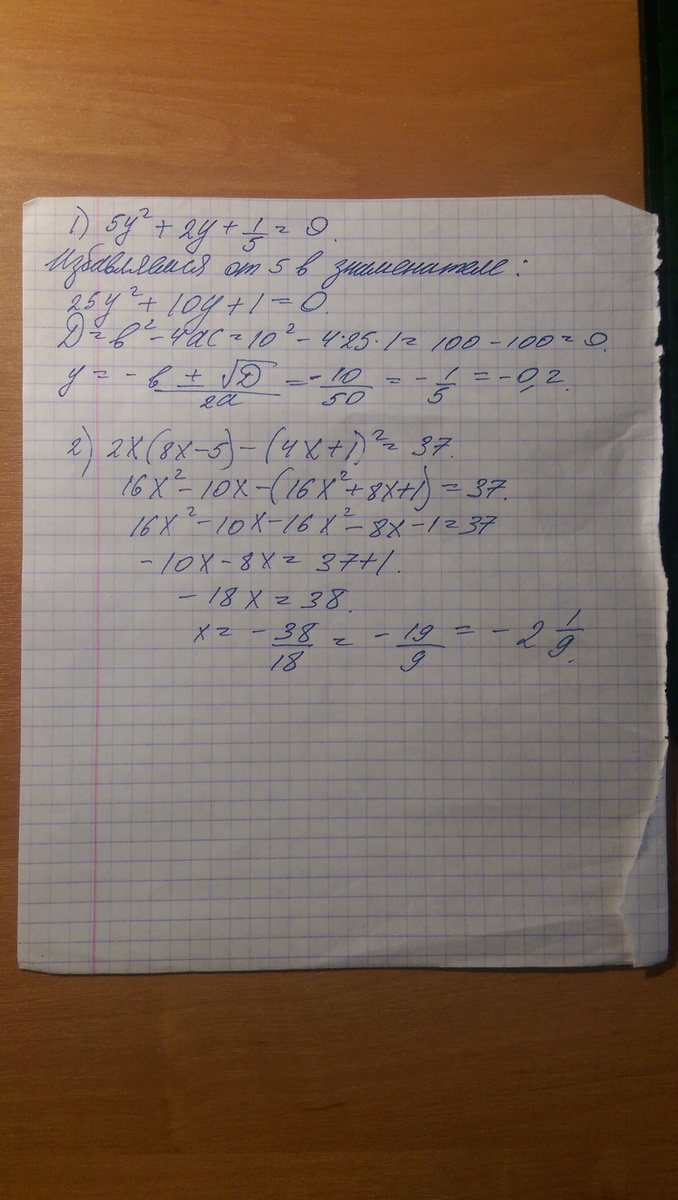 1) 5y² + 2y + 1/5 = 0.
Избавляемся от 5 в знаменателе:
25y² + 10y + 1 = 0.
D = в² - 4ac = 10² - 4·25·1 = 100 - 100 = 0.
y = -в ± √D / 2a = -10/50 = -1/5 = -0,2.
2) 2x(8x-5) - (4x+1)² = 37.
16x² - 10x - (16x² + 8x + 1) = 37.
16x² - 10x - 16x² - 8x - 1 = 37
-10x - 8x = 37+1.
-18x = 38.
x = -38/18 = -19/9 = -2 1/9.